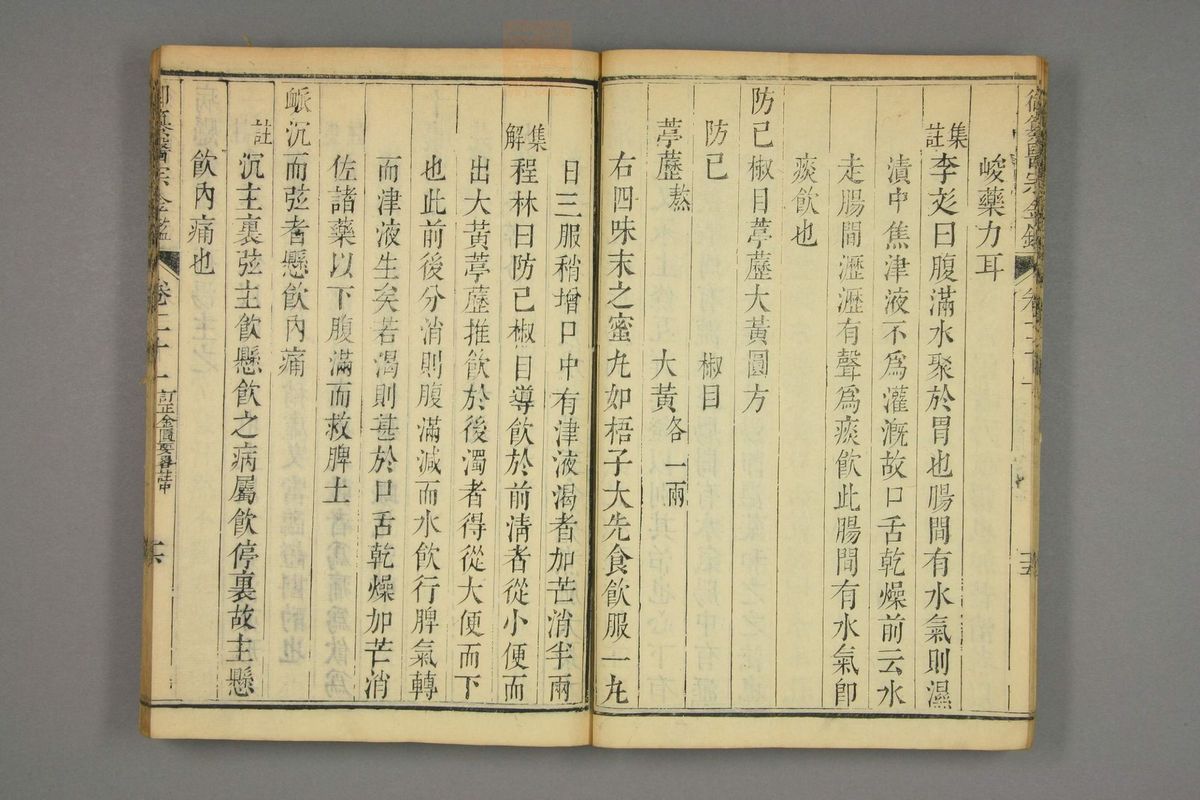 峻藥力耳
集註李彣曰腹滿水聚於胃也腸間有水氣則濕
漬中焦津液不爲灌漑故口舌乾燥前云水
走腸間瀝瀝有聲爲痰飮此腸間有水氣卽
痰飮也
防己椒目葶藶大黃圓方
防己 椒目
葶藶熬 大黃各一兩
右四味末之蜜丸如梧子大先食飮服一丸
日三服稍增口中有津液渴者加芒消半兩
集解程林曰防己椒目導飮於前淸者從小便而
出大黃葶藶推飮於後濁者得從大便而下
也此前後分消則腹滿減而水飮行脾氣轉
而津液生矣若渴則甚於口舌乾燥加芒消
佐諸藥以下腹滿而救脾土
脈沉而弦者懸飮內痛
註沉主裏弦主飮懸飮之病屬飮停裏故主懸
飮內痛也
卷二十一 訂正金匱要略註中